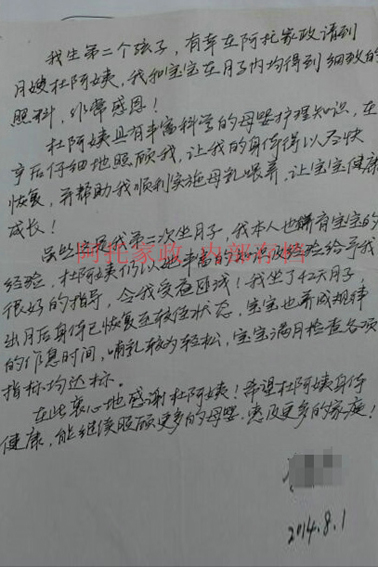 我生第二个孩子，有幸在阿托家政请到
月嫂杜阿姨，我和宝宝在月子内均得到细致的
照料，非常感恩！
杜阿姨具有丰富科学的母婴护理知识，在
产后仔细地照顾我，让我的身体得以尽快
恢复，并帮助我顺利实施母乳喂养，让宝宝健康
成长！
虽然这是我第二次坐月子，我本人也有育宝宝的
经验，杜阿姨仍以她丰富的知识及经验给予我
很好的指导，令我受益匪浅！我坐了42天月子，
出月后身体已恢复至较佳状态，宝宝也养成规律
的作息时间，哺乳较为轻松，宝宝满月检查各项
指标均达标。
在此衷心地感谢杜阿姨！希望杜阿姨身体
健康，能继续照顾更多的母婴，惠及更多的家庭！
2014.8.1
阿托家政 内部存档